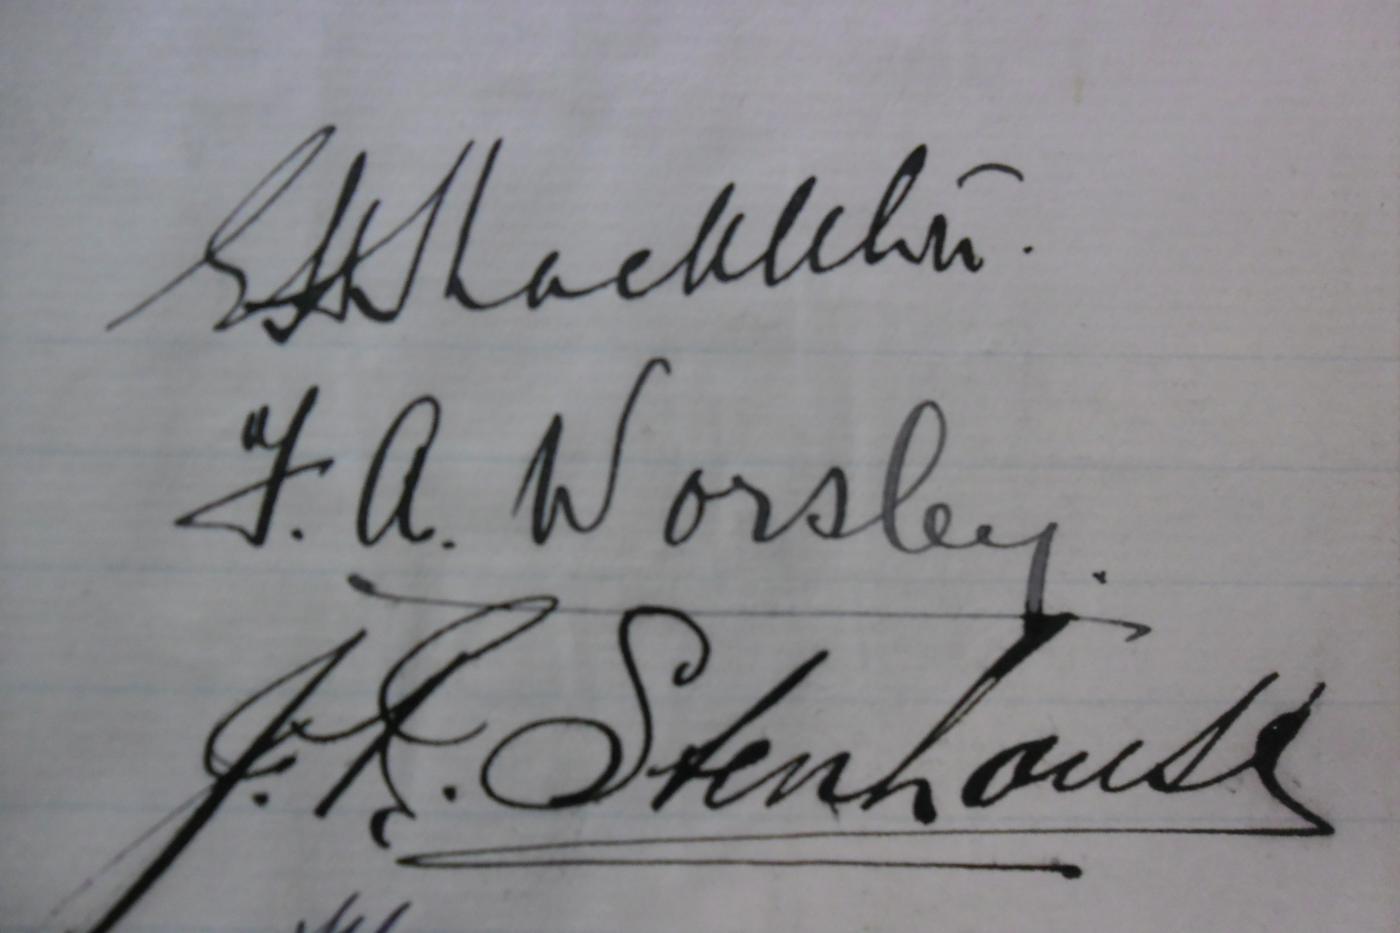 E H Shackleton.
F. A. Worsley.
J. R. Stenhouse